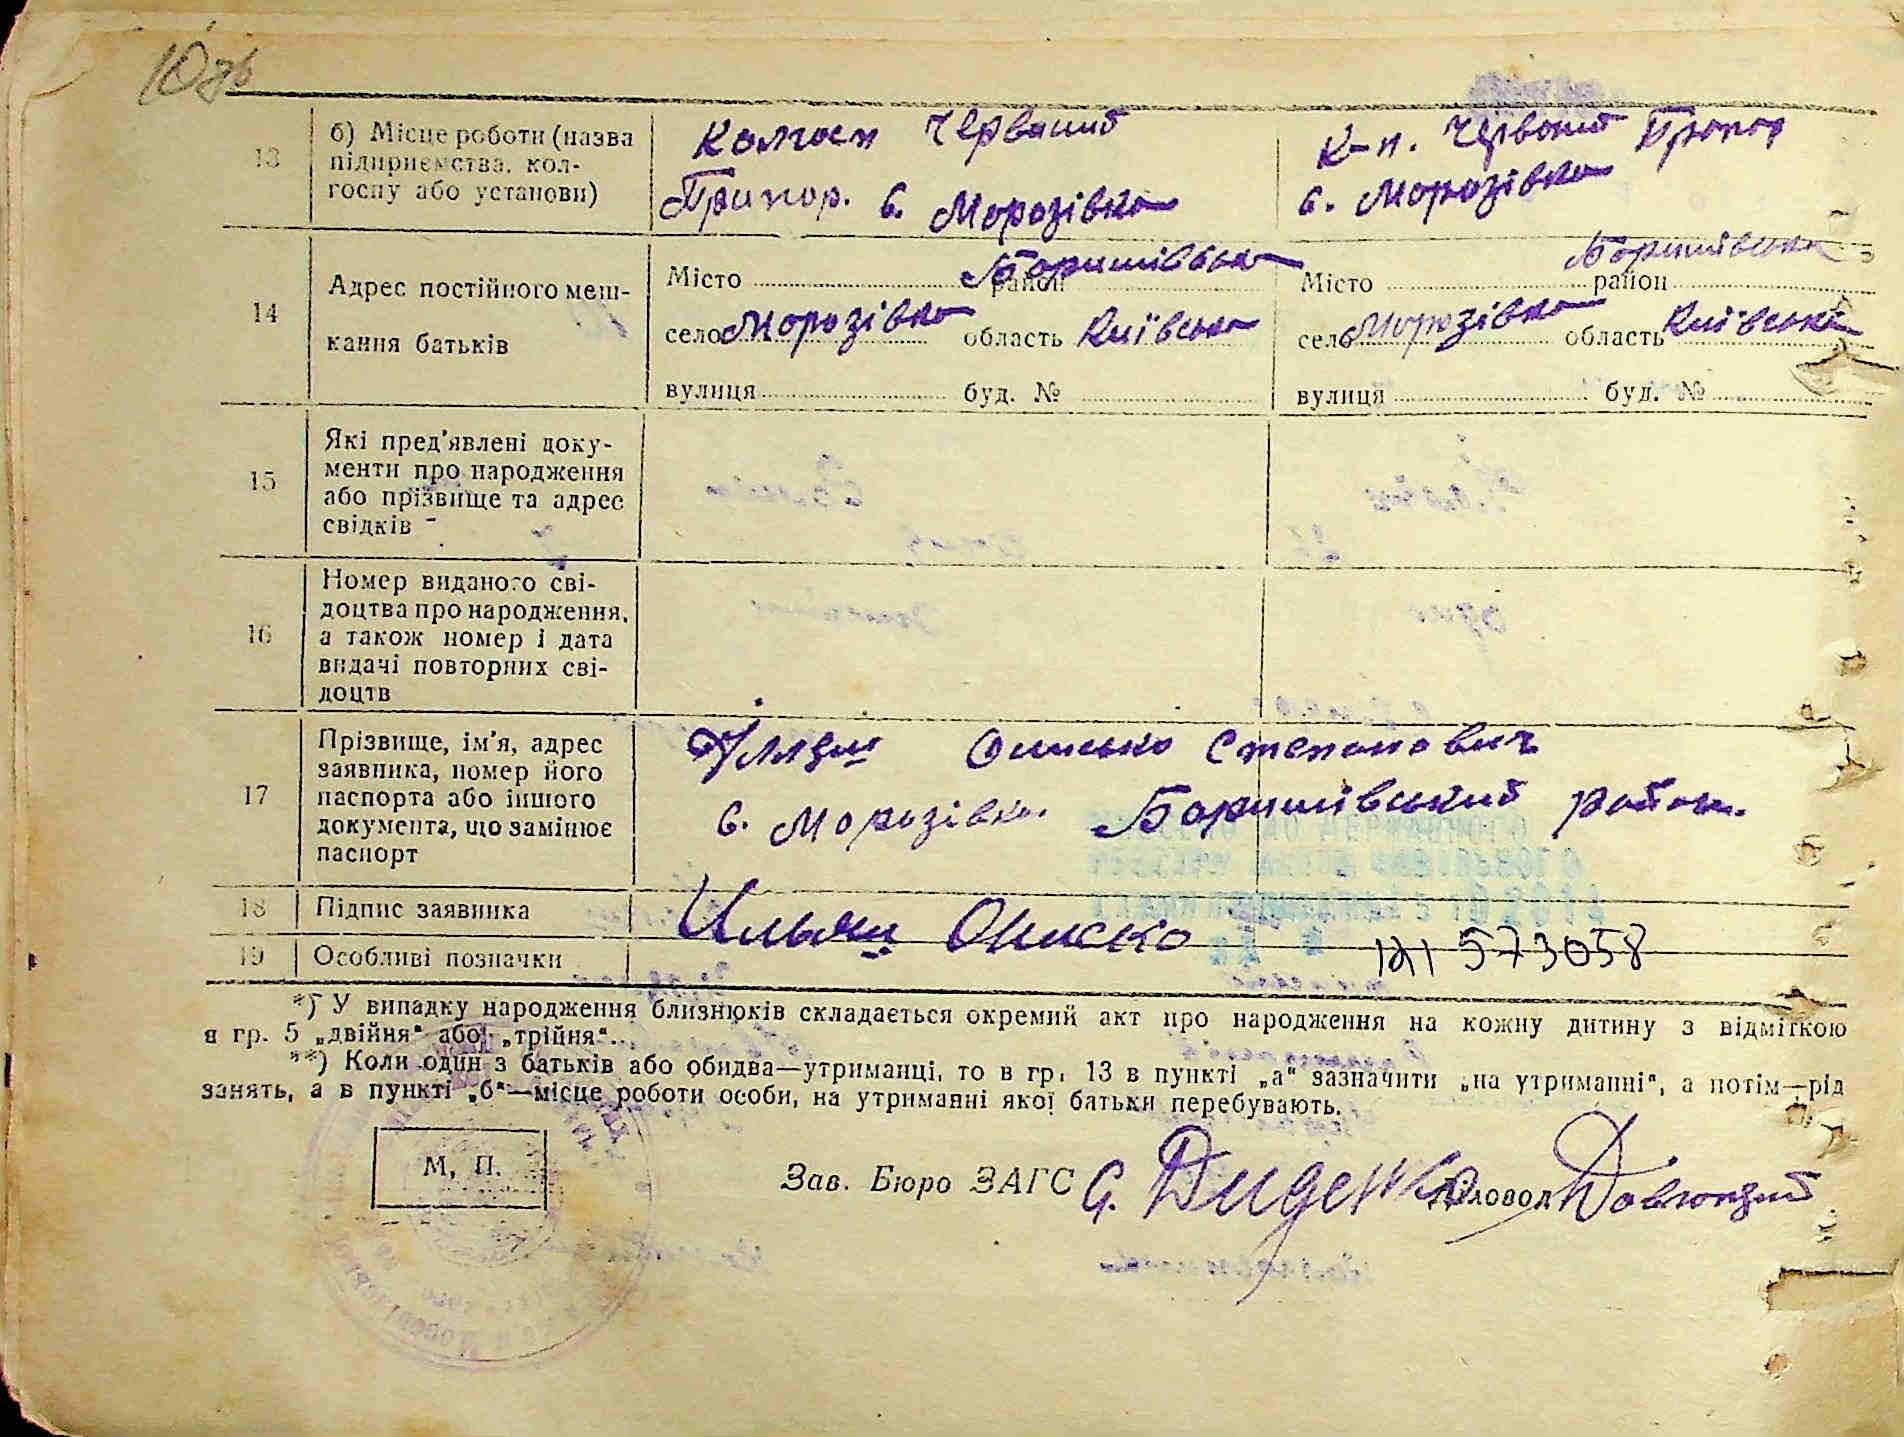 10 зв
13 б) Місце роботи (назва підприємства, колгоспу або установи)
Колгосп Червоний
Прапор. с. Морозівка
К-п. Червоний Прапор
с. Морозівка
14 Адрес постійного мешкання батьків
Місто район Баришівська
село Морозівка область Київська
вулиця буд. №
Місто район Баришівська
село Морозівка область Київська
вулиця буд. №
15 Які пред'явлені документи про народження або прізвище та адрес свідків
16 Номер виданого свідоцтва про народження, а також номер і дата видачі повторних свідоцтв
17 Прізвище, ім'я, адрес заявника, номер його паспорта або іншого документа, що замінює паспорт
Ілляш Онисько Степанович
с. Морозівка. Баришівський район.
18 Підпис заявника
Ильяш Ониско
19 Особливі позначки
573058
*) У випадку народження близнюків складається окремий акт про народження на кожну дитину з відміткою
в гр. 5 „двійня“ або „трійня“.
**) Коли один з батьків або обидва—утриманці, то в гр. 13 в пункті „а“ зазначити „на утриманні“, а потім—рід
занять, а в пункті „б“—місце роботи особи, на утриманні якої батьки перебувають.
М. П.
Зав. Бюро ЗАГС С. Диденко Діловод